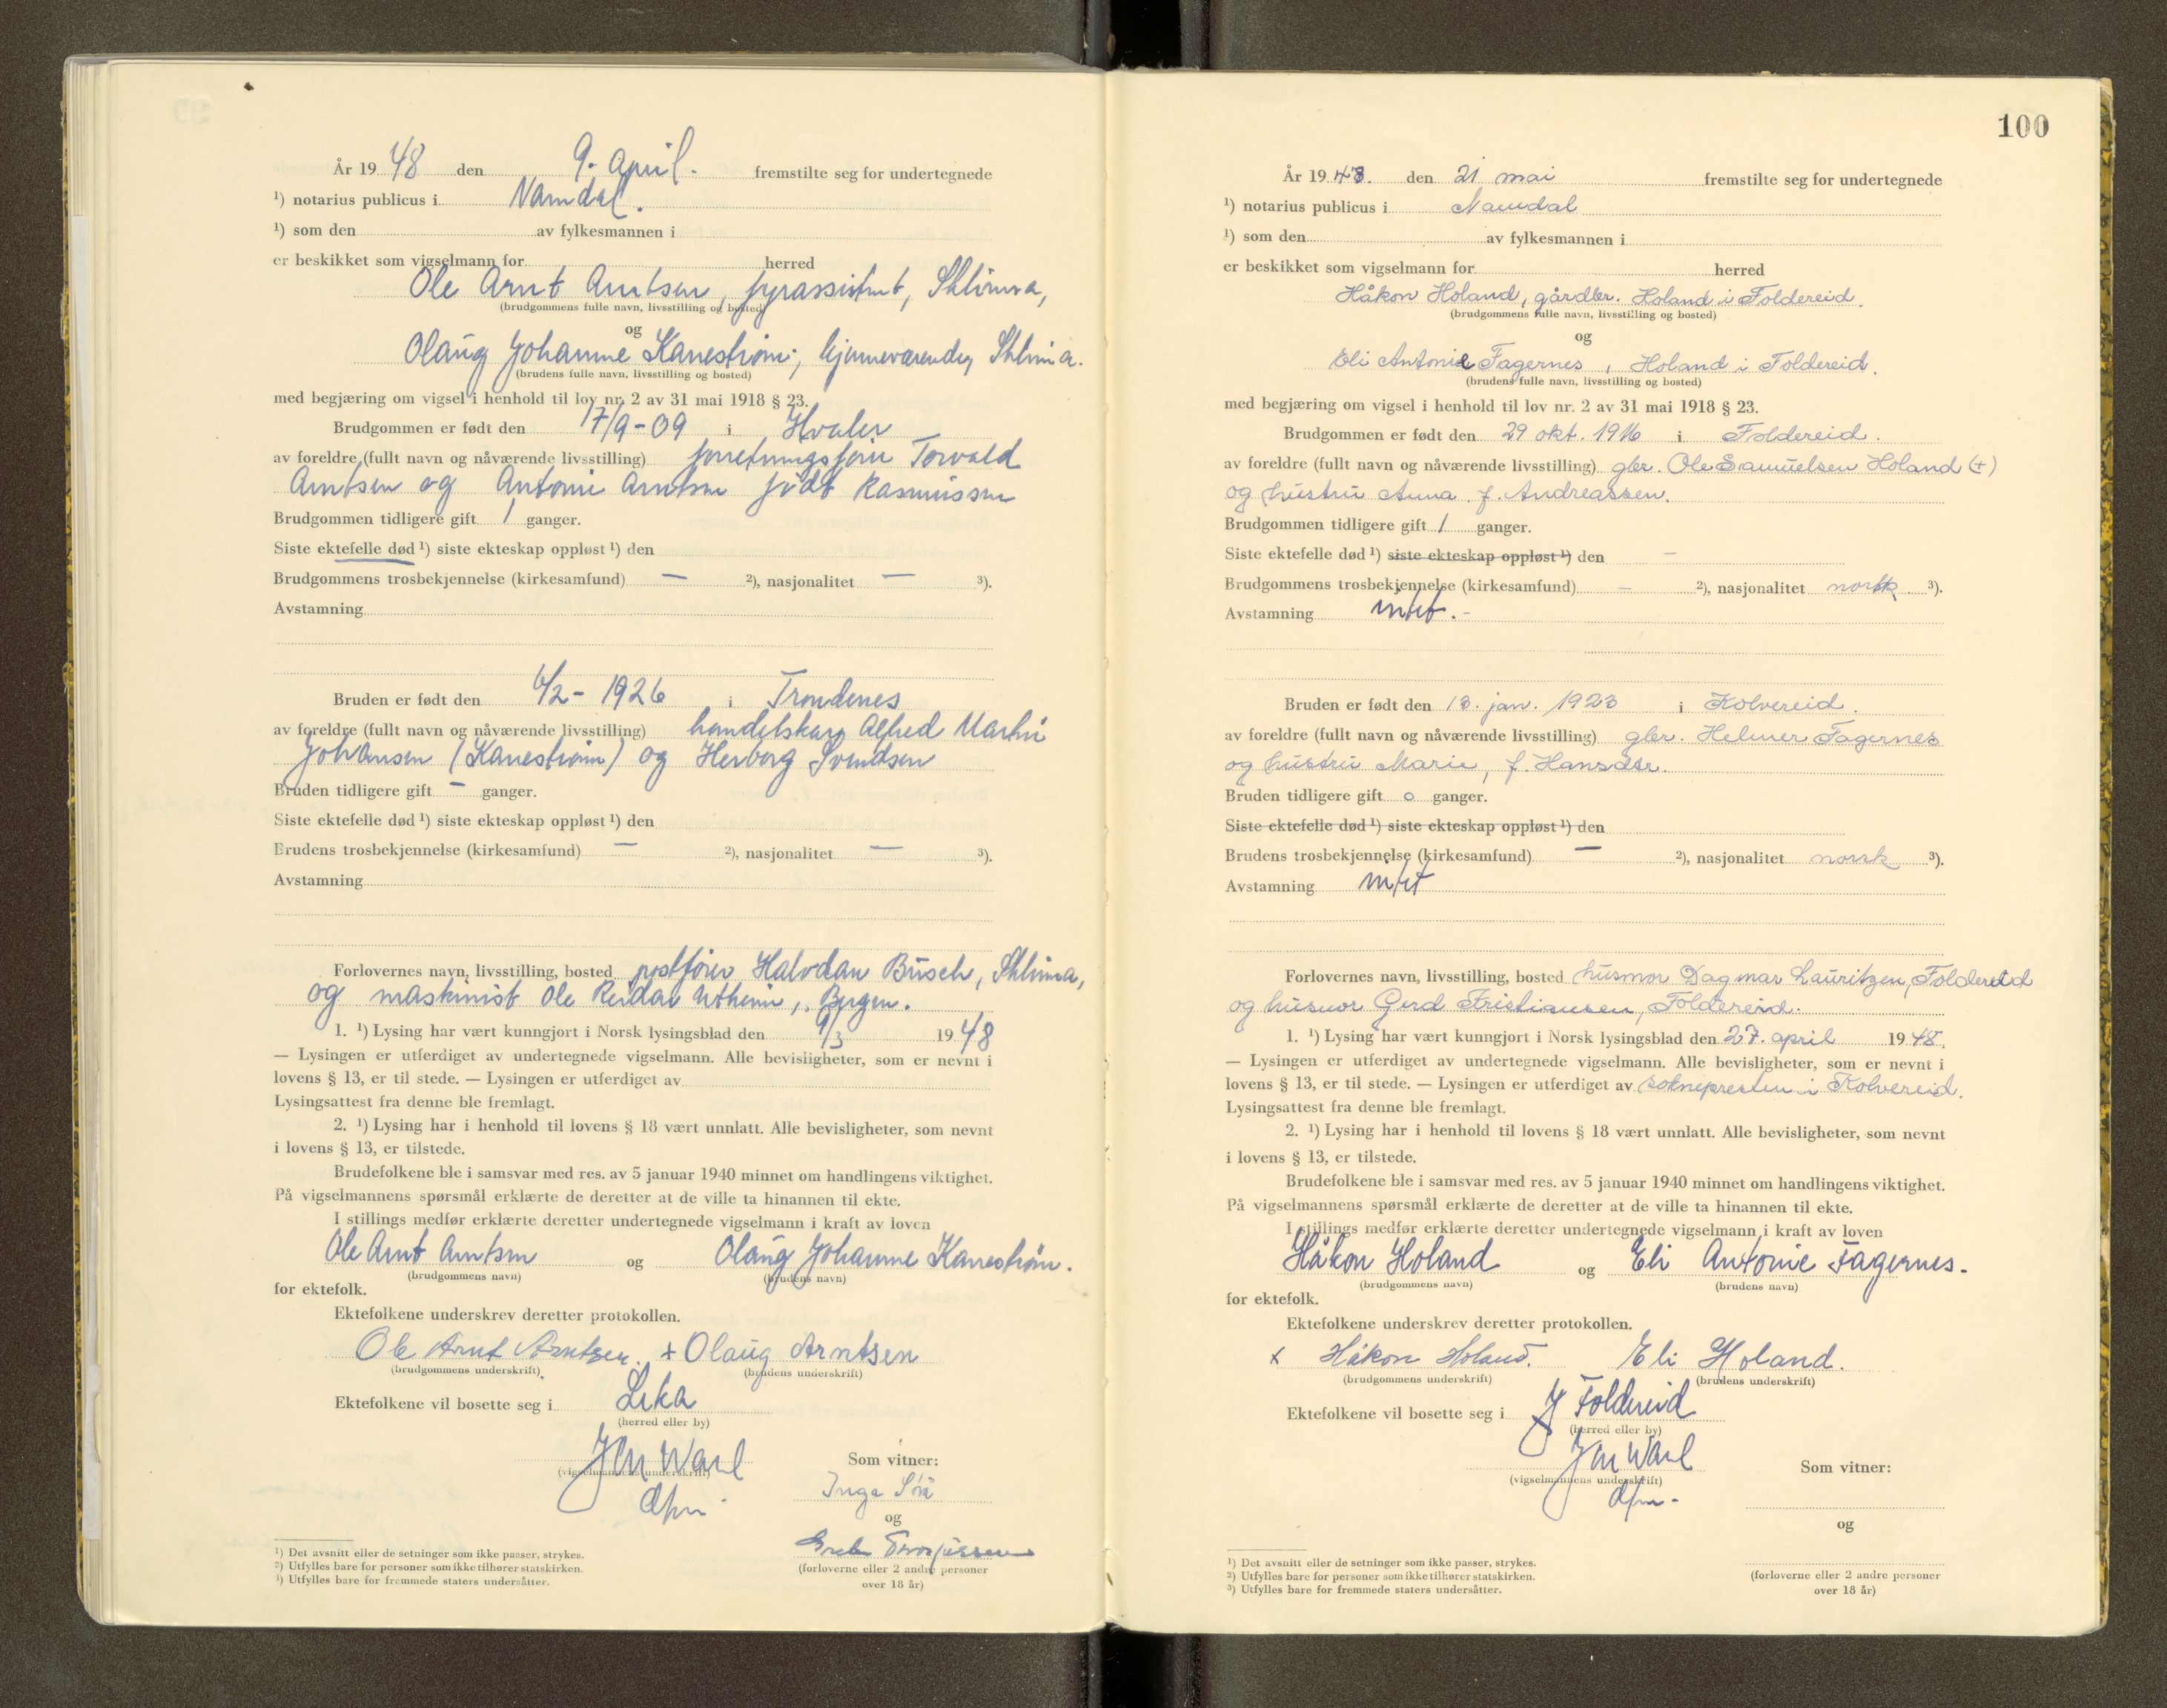 År 19 48 den 9. April. fremstilte seg for undertegnede
¹) notarius publicus i Namdal.
¹) som den av fylkesmannen i
er beskikket som vigselmann for herred
Ole Arnt Arntsen, fyrassistent, Sklinna,
(brudgommens fulle navn, livsstilling og bosted)
og
Olaug Johanne Kanestrøm, hjemmeværende, Sklinna.
(brudens fulle navn, livsstilling og bosted)
med begjæring om vigsel i henhold til lov nr. 2 av 31 mai 1918 § 23.
Brudgommen er født den 17/9-09 i Hvaler
av foreldre (fullt navn og nåværende livsstilling) forretningsfører Torvald
Arntsen og Antonie Arntsen født Rasmussen
Brudgommen tidligere gift 1 ganger.
Siste ektefelle død ¹) siste ekteskap oppløst ¹) den
Brudgommens trosbekjennelse (kirkesamfund) — ²), nasjonalitet — ³).
Avstamning
Bruden er født den 6/2-1926 i Trondenes
av foreldre (fullt navn og nåværende livsstilling) handelskar Alfred Martin
Johansen (Kanestrøm) og Herborg Svendsen
Bruden tidligere gift — ganger.
Siste ektefelle død ¹) siste ekteskap oppløst ¹) den
Brudens trosbekjennelse (kirkesamfund) — ²), nasjonalitet — ³).
Avstamning
Forlovernes navn, livsstilling, bosted postfører Halvdan Busch, Sklinna,
og maskinist Ole Reidar Utheim, Bergen.
1. ¹) Lysing har vært kunngjort i Norsk lysingsblad den 9/3 19 48
— Lysingen er utferdiget av undertegnede vigselmann. Alle bevisligheter, som er nevnt i
lovens § 13, er til stede. — Lysingen er utferdiget av
Lysingsattest fra denne ble fremlagt.
2. ¹) Lysing har i henhold til lovens § 18 vært unnlatt. Alle bevisligheter, som nevnt
i lovens § 13, er tilstede.
Brudefolkene ble i samsvar med res. av 5 januar 1940 minnet om handlingens viktighet.
På vigselmannens spørsmål erklærte de deretter at de ville ta hinannen til ekte.
I stillings medfør erklærte deretter undertegnede vigselmann i kraft av loven
Ole Arnt Arntsen og Olaug Johanne Kanestrøm.
(brudgommens navn) (brudens navn)
for ektefolk.
Ektefolkene underskrev deretter protokollen.
Ole Arnt Arntsen. x Olaug Arntsen
(brudgommens underskrift) (brudens underskrift)
Ektefolkene vil bosette seg i Leka
(herred eller by)
(vigselmannens underskrift)
Som vitner:
Inga
og
(forloverne eller 2 andre personer
over 18 år)
¹) Det avsnitt eller de setninger som ikke passer, strykes.
²) Utfylles bare for personer som ikke tilhører statskirken.
³) Utfylles bare for fremmede staters undersåtter.
100
År 19 48. den 21 mai fremstilte seg for undertegnede
¹) notarius publicus i Namdal
¹) som den av fylkesmannen i
er beskikket som vigselmann for herred
Håkon Holand, gårdbr. Holand i Foldereid.
(brudgommens fulle navn, livsstilling og bosted)
og
Eli Antonie Fagernes, Holand i Foldereid.
(brudens fulle navn, livsstilling og bosted)
med begjæring om vigsel i henhold til lov nr. 2 av 31 mai 1918 § 23.
Brudgommen er født den 29 okt. 1916 i Foldereid.
av foreldre (fullt navn og nåværende livsstilling) gbr. Ole Samuelsen Holand (+)
og hustru Anna f. Andreassen.
Brudgommen tidligere gift 1 ganger.
Siste ektefelle død ¹) siste ekteskap oppløst ¹) den —
Brudgommens trosbekjennelse (kirkesamfund) — ²), nasjonalitet norsk ³).
Avstamning
Bruden er født den 13. jan. 1923 i Kolvereid.
av foreldre (fullt navn og nåværende livsstilling) gbr. Helmer Fagernes
og hustru Marie, f. Hansdtr.
Bruden tidligere gift 0 ganger.
Siste ektefelle død ¹) siste ekteskap oppløst ¹) den
Brudens trosbekjennelse (kirkesamfund) — ²), nasjonalitet norsk ³).
Avstamning
Forlovernes navn, livsstilling, bosted husmor Dagmar Lauritzen, Foldereid
og husmor Gerd Kristiansen, Foldereid.
1. ¹) Lysing har vært kunngjort i Norsk lysingsblad den 27. april 19 48.
— Lysingen er utferdiget av undertegnede vigselmann. Alle bevisligheter, som er nevnt i
lovens § 13, er til stede. — Lysingen er utferdiget av soknepresten i Kolvereid.
Lysingsattest fra denne ble fremlagt.
2. ¹) Lysing har i henhold til lovens § 18 vært unnlatt. Alle bevisligheter, som nevnt
i lovens § 13, er tilstede.
Brudefolkene ble i samsvar med res. av 5 januar 1940 minnet om handlingens viktighet.
På vigselmannens spørsmål erklærte de deretter at de ville ta hinannen til ekte.
I stillings medfør erklærte deretter undertegnede vigselmann i kraft av loven
Håkon Holand og Eli Antonie Fagernes.
(brudgommens navn) (brudens navn)
for ektefolk.
Ektefolkene underskrev deretter protokollen.
x Håkon Holand. Eli Holand.
(brudgommens underskrift) (brudens underskrift)
Ektefolkene vil bosette seg i Foldereid
(herred eller by)
(vigselmannens underskrift)
Som vitner:
og
(forloverne eller 2 andre personer
over 18 år)
¹) Det avsnitt eller de setninger som ikke passer, strykes.
²) Utfylles bare for personer som ikke tilhører statskirken.
³) Utfylles bare for fremmede staters undersåtter.